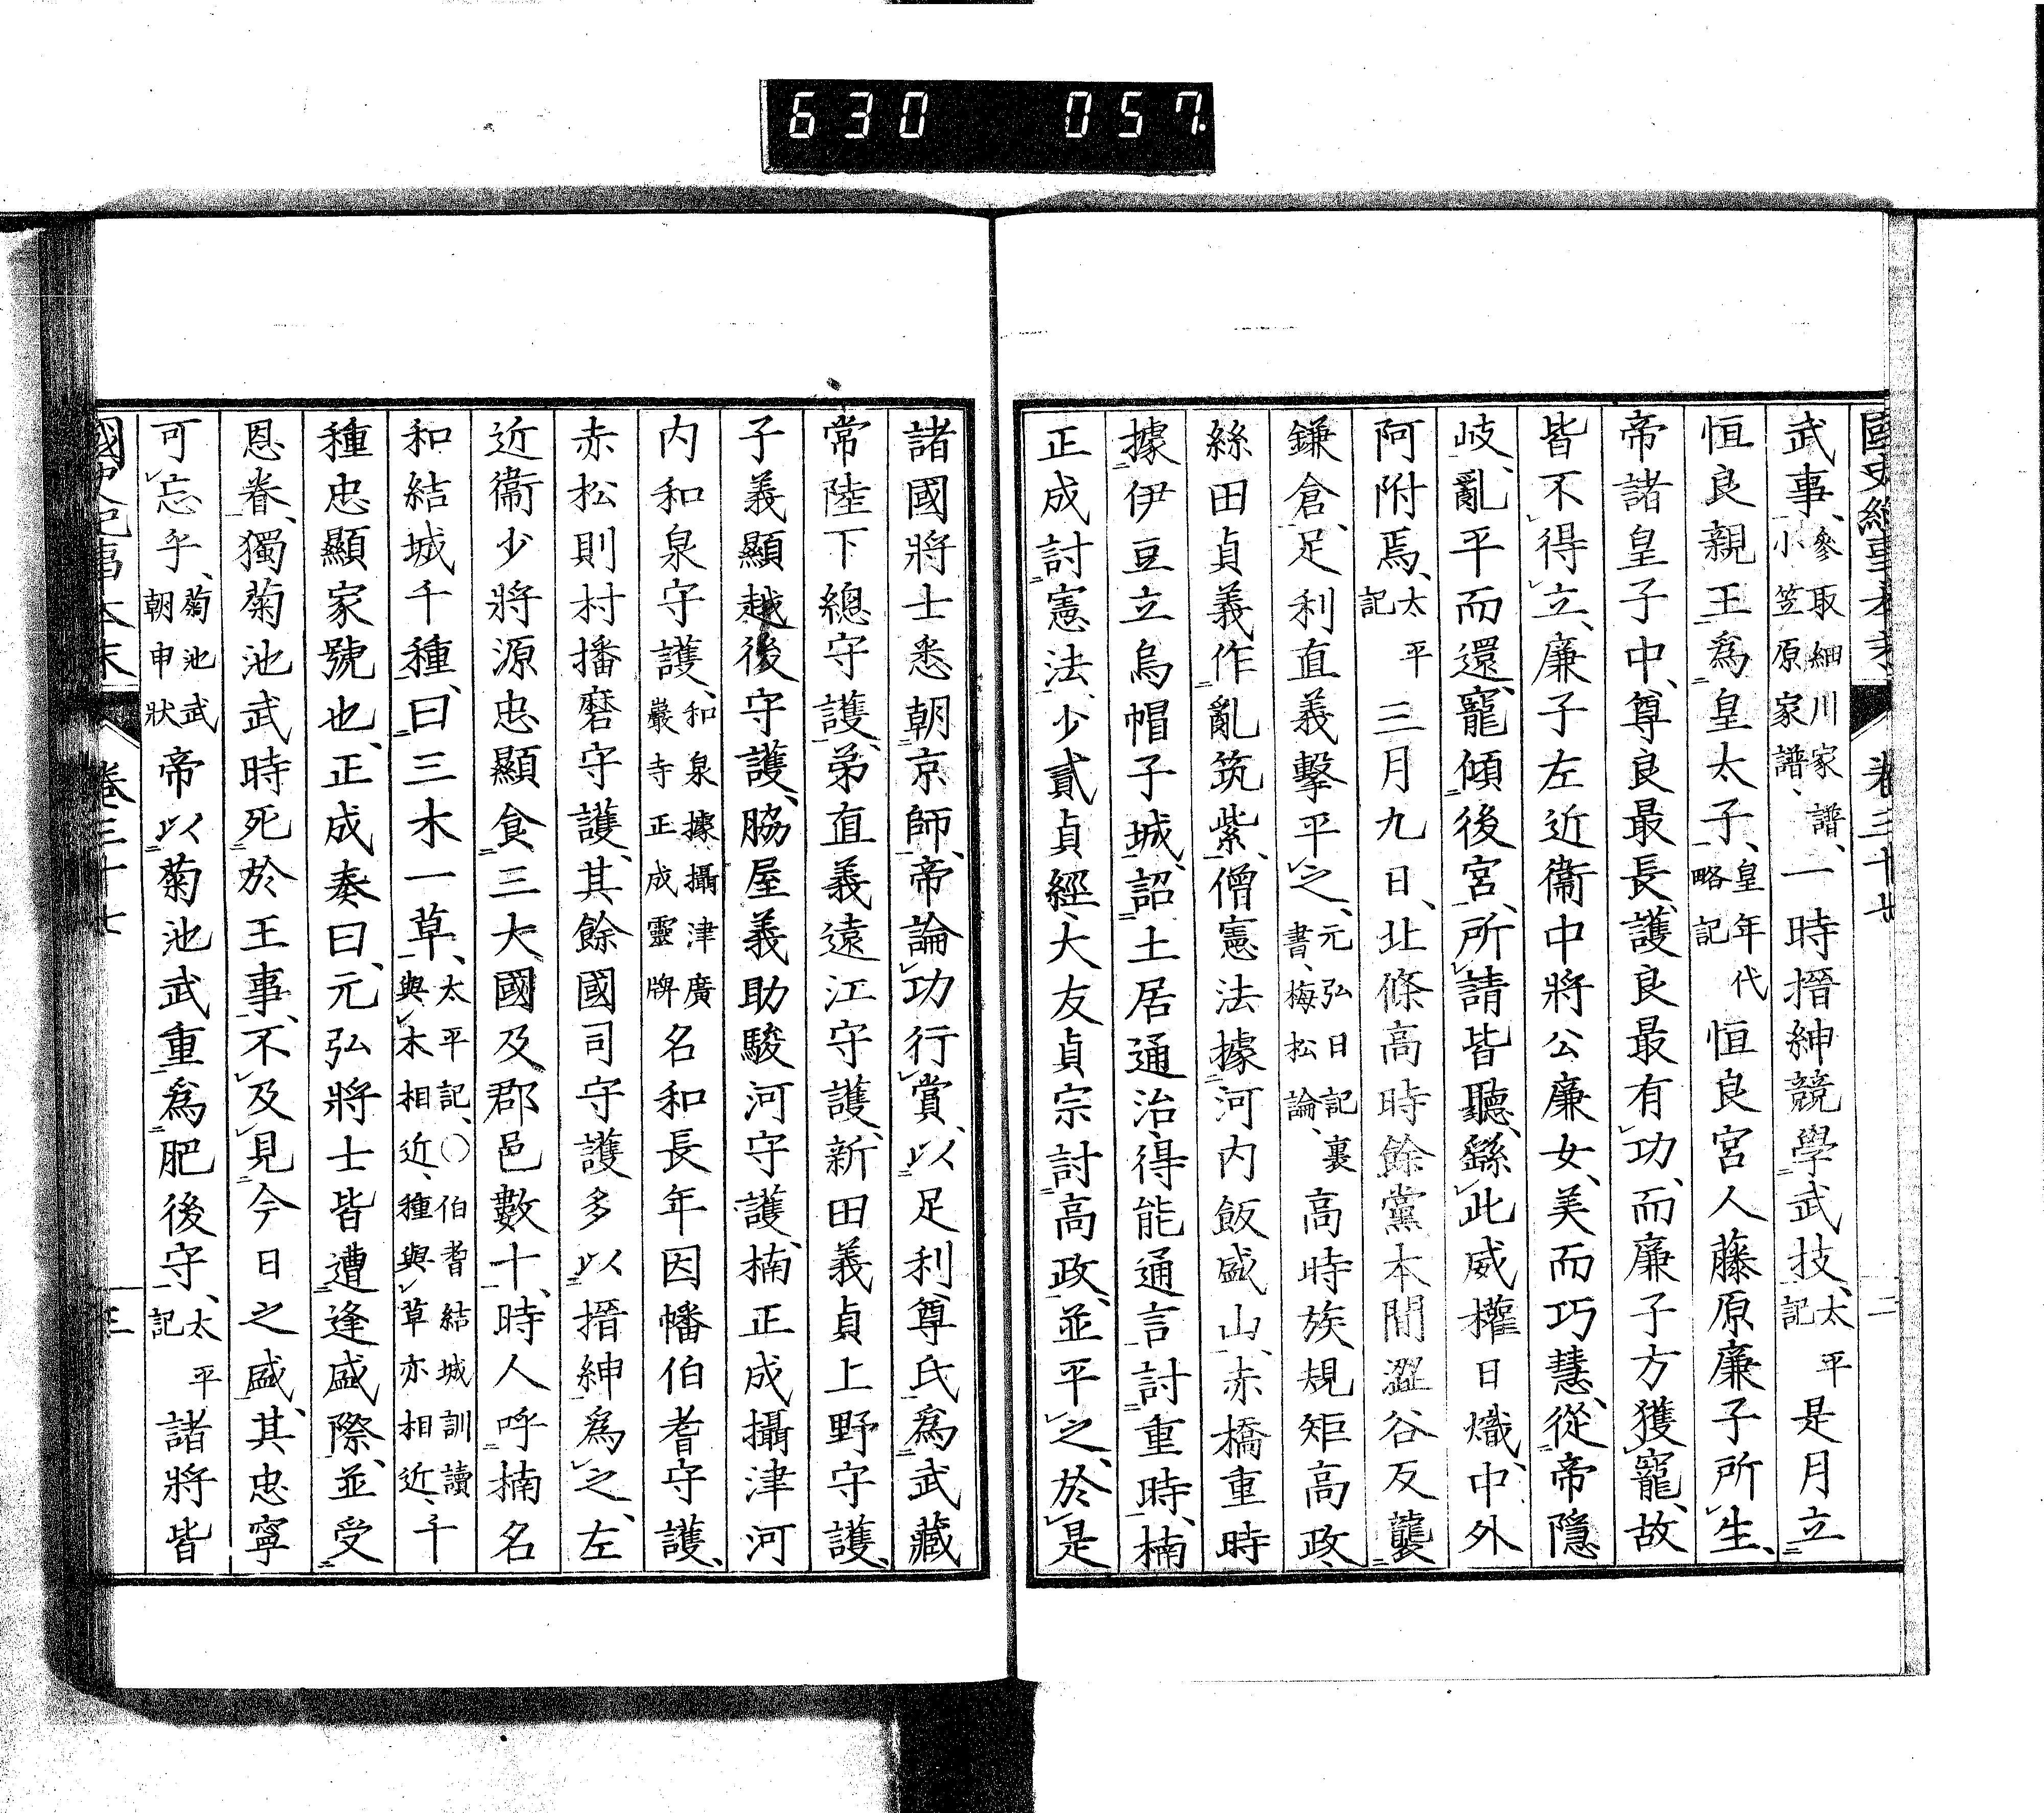 630 057
武事、參取細川家譜、小笠原家譜、一時搢紳競學武技、太平記是月立
恒良親王爲皇太子、皇年代略記恒良宮人藤原廉子所生、
帝諸皇子中、尊良最長、護良最有功、而廉子方獲寵、故
皆不得立、廉子左近衞中將公廉女、美而巧慧、從帝隱
岐、亂平而還、寵傾後宮、所請皆聽、繇此威權日熾、中外
阿附焉、太平記三月九日、北條高時餘黨本間澀谷反襲
鎌倉、足利直義擊平之、元弘日記裏書、梅松論、高時族規矩高政、
絲田貞義作亂筑紫、僧憲法據河内飯盛山、赤橋重時
據伊豆立烏帽子城、詔土居通治、得能通言討重時、楠
正成討憲法、少貳貞經、大友貞宗討高政、並平之、於是
諸國將士悉朝京師、帝論功行賞、以足利尊氏爲武藏
常陸下總守護、弟直義遠江守護、新田義貞上野守護、
子義顯越後守護、脇屋義助駿河守護、楠正成攝津河
内和泉守護、和泉據攝津廣巖寺正成靈牌名和長年因幡伯耆守護、
赤松則村播磨守護、其餘國司守護多以搢紳爲之、左
近衞少將源忠顯食三大國及郡邑數十、時人呼楠名
和結城千種、曰三木一草、太平記、〇伯耆結城訓讀與木相近、種與草亦相近、千
種忠顯家號也、正成奏曰、元弘將士皆遭逢盛際、並受
恩眷、獨菊池武時死於王事、不及見今日之盛、其忠寧
可忘乎、菊池武朝申狀帝以菊池武重爲肥後守、太平記諸將皆
國史紀事本末 卷三十七 三